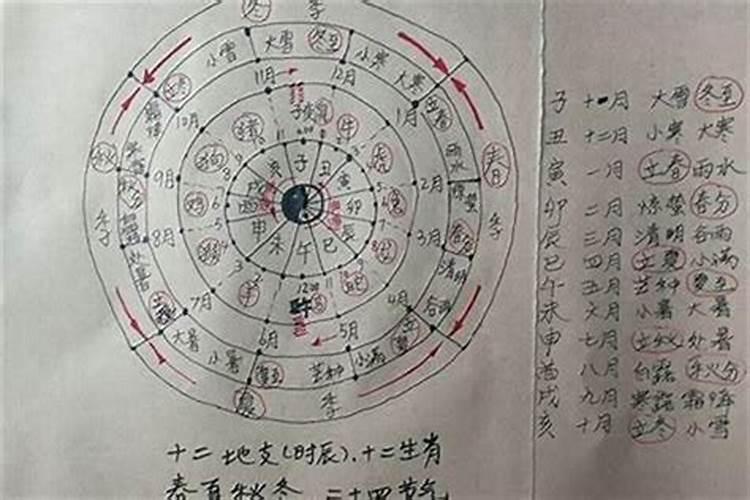 冬 季
小雪 大雪 冬至 小寒 大寒
立冬 11月 12月 立春
10月 子 1月
猪 鼠 牛
秋 春
狗 亥 子 丑 虎 雨水
9月 戌 寅 2月 惊蛰
秋分 鸡 酉 卯 兔
季 8月 申 辰 3月 春分 季
猴 未 午 巳 龙 清明
处暑 羊 蛇 谷雨
立秋 7月 12:00 4月
午 立夏
大暑 6月 5月
小暑 夏至 芒种 小满
夏 季
子 十一月 大雪 冬至
丑 十二月 小寒 大寒
寅 一月 立春 雨水
卯 二月 惊蛰 春分
辰 三月 清明 谷雨
巳 四月 立夏 小满
午 五月 芒种 夏至
未 六月 小暑 大暑
申 七月 立秋 处暑
酉 八月 白露 秋分
戌 九月 寒露 霜降
亥 十月 立冬 小雪
十二地支(时辰)、十二生肖
春夏秋冬 二十四节气